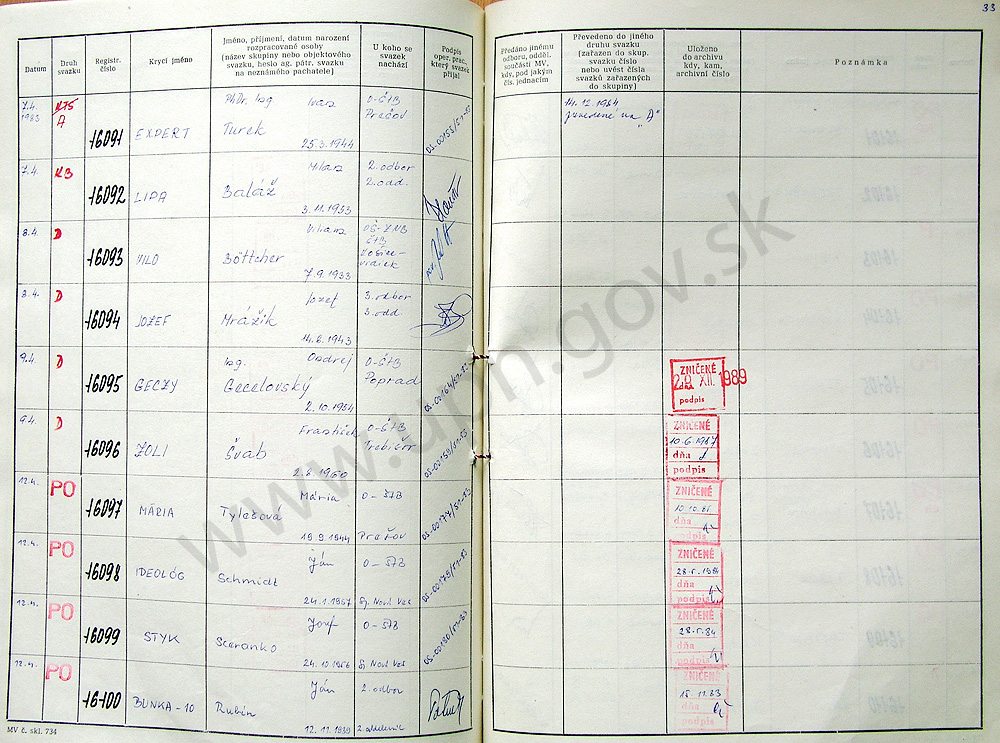 33
Datum
Druh svazku
Registr. číslo
Krycí jméno
Jméno, příjmení, datum narození
rozpracované osoby
(název skupiny nebo objektového
svazku, heslo ag. pátr. svazku
na neznámého pachatele)
U koho se
svazek
nachází
Podpis
oper. prac.,
který svazek
přijal
Předáno jinému
odboru, odděl.
součásti MV,
kdy, pod jakým
čís. jednacím
Převedeno do jiného
druhu svazku
(zařazen do skup.
svazku číslo
nebo uvést čísla
svazků zařazených
do skupiny)
Uloženo
do archivu
kdy, kam,
archivní číslo
Poznámka
7.4. 1983 A 16091 EXPERT PhDr. Ing. Ivan Turek 25.3.1944 O-ŠTB Prešov 14.12.1984 "A"
7.4. KB 16092 LIPA Milan Baláž 3.11.1933 2. odbor 2. odd.
8.4. D 16093 VILO Viliam Böttcher 7.9.1933 ŠTB
8.4. D 16094 JOZEF Jozef Mrázik 14.2.1943 3. odbor 3. odd.
9.4. D 16095 GECZY Ing. Ondrej Gecelovský 2.10.1954 O-ŠTB Poprad ZNIČENÉ XII. 1989 podpis
9.4. D 16096 ZOLI František Šváb 1960 O-ŠTB Trebišov ZNIČENÉ 10.6.1987 dňa podpis
12.4. PO 16097 MÁRIA Mária Tylešová 1944 O-ŠTB Prešov ZNIČENÉ dňa podpis
12.4. PO 16098 IDEOLÓG Ján Schmidt 24.1.1957 O-ŠTB Sp. Nová Ves ZNIČENÉ dňa podpis
12.4. PO 16099 STYK Jozef Sceranko 24.10.1956 O-ŠTB Sp. Nová Ves ZNIČENÉ dňa podpis
12.4. PO 16100 BUNKA-10 Ján Rubín 12.11.1939 2. odbor ZNIČENÉ 15.11.83 dňa podpis
MV č. skl. 734
www.upn.gov.sk